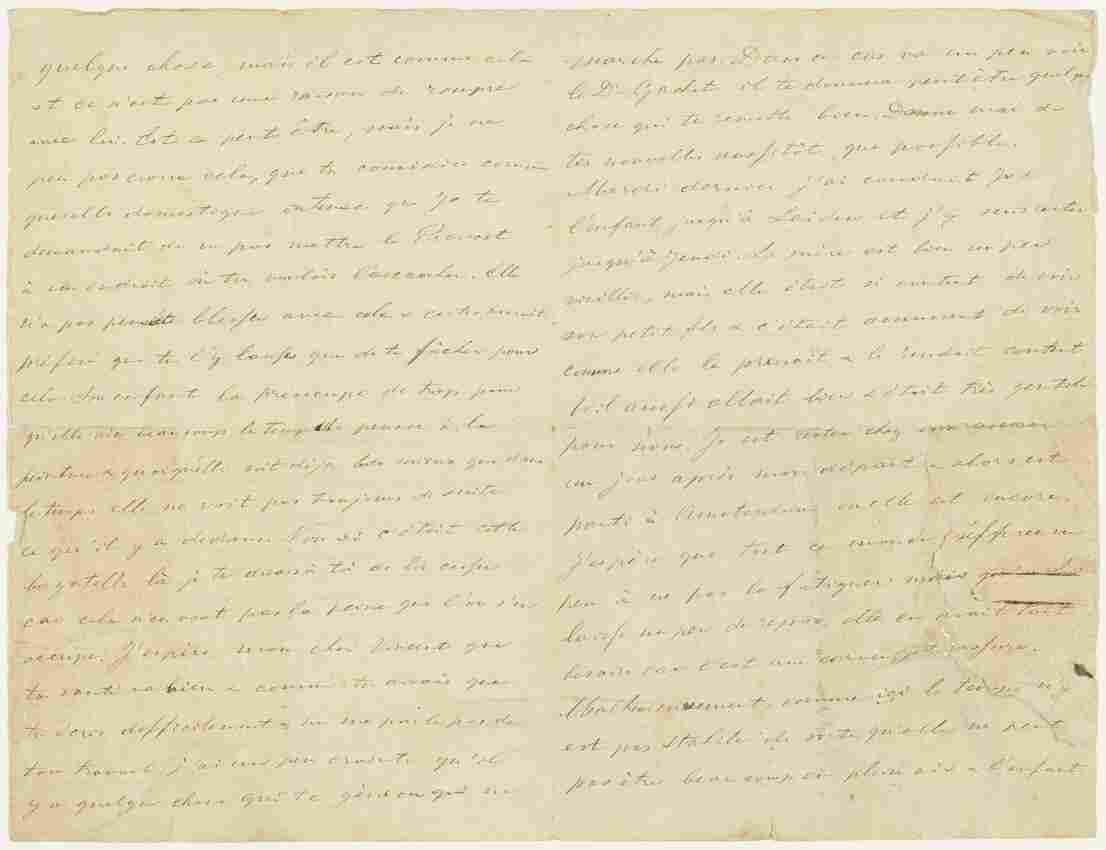 quelque chose, mais il est comme cela
et ce n'est pas une raison de rompre
avec lui. Est ce peut être, mais je ne
peu pas croire cela, que tu considères comme
querelle domestique intense que Jo te
demandait de ne pas mettre le Prevost
à un endroit où tu voulais l'accrocher. Elle
n'a pas pensée blesser avec cela & certes
préféré que tu l'y laisses que de te fâcher pour
cela. Son enfant la préoccupe de trop pour
qu'elle aie beaucoup le temps de penser à la
peinture & quoiqu'elle soit déjà bien mieux que dans
le temps elle ne voit pas toujours de suite
ce qu'il y a dedans. Donc si c'était cette
bagatelle là je te dirais tu as
car cela n'en vaut pas la peine que l'on s'en
occupe. J'espère mon cher Vincent que
ta santé va bien & comme tu disais que
tu écris difficilement & ne me parle pas de
ton travail j'ai un peu crainte qu'il
y a quelque chose qui te gêne ou qui ne
marche pas. Dans ce cas va un peu voir
le Dr Gachet il te donnera peut être quelque
chose qui te remette bien. Donne moi de
tes nouvelles aussitôt que possible.
Mardi dernier j'ai conduit Jo &
l'enfant jusqu'à Leiden et j'y suis resté
jusqu'à jeudi. La mère est bien un peu
vieillie, mais elle était si contente de voir
son petit fils & c'était amusant de voir
comme elle le prenait & le rendait content
Wil aussi allait bien & était très gentille
pour nous. Jo est restée chez ma mère
un jour après mon départ & alors est
partie à Amsterdam où elle est encore.
J'espère que tout ce monde s'efforce un
peu à ne pas la fatiguer mais
laisse un peu de repos, elle en avait tant
besoin car c'est une
Malheureusement comme ici le temps n'y
est pas stable de sorte qu'elle ne peut
pas être beaucoup en plein air & l'enfant